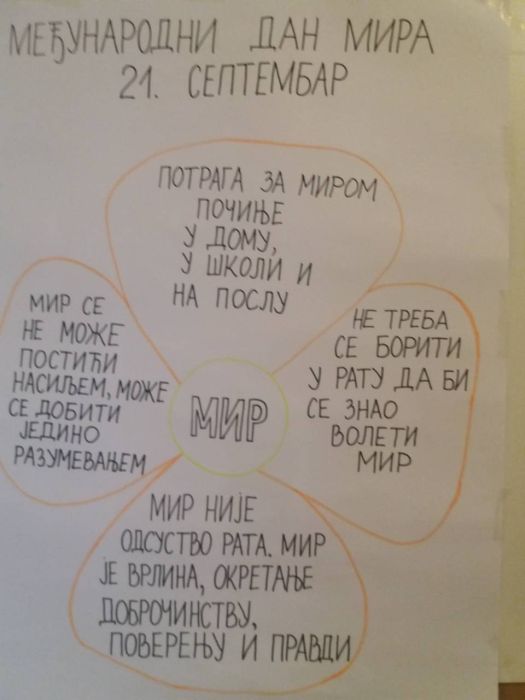 МЕЂУНАРОДНИ ДАН МИРА
21. СЕПТЕМБАР
ПОТРАГА ЗА МИРОМ
ПОЧИЊЕ
У ДОМУ,
У ШКОЛИ И
НА ПОСЛУ
МИР СЕ
НЕ МОЖЕ
ПОСТИЋИ
НАСИЉЕМ, МОЖЕ
СЕ ДОБИТИ
ЈЕДИНО
РАЗУМЕВАЊЕМ
МИР
НЕ ТРЕБА
СЕ БОРИТИ
У РАТУ ДА БИ
СЕ ЗНАО
ВОЛЕТИ
МИР
МИР НИЈЕ
ОДСУСТВО РАТА. МИР
ЈЕ ВРЛИНА, ОКРЕТАЊЕ
ДОБРОЧИНСТВУ,
ПОВЕРЕЊУ И ПРАВДИ